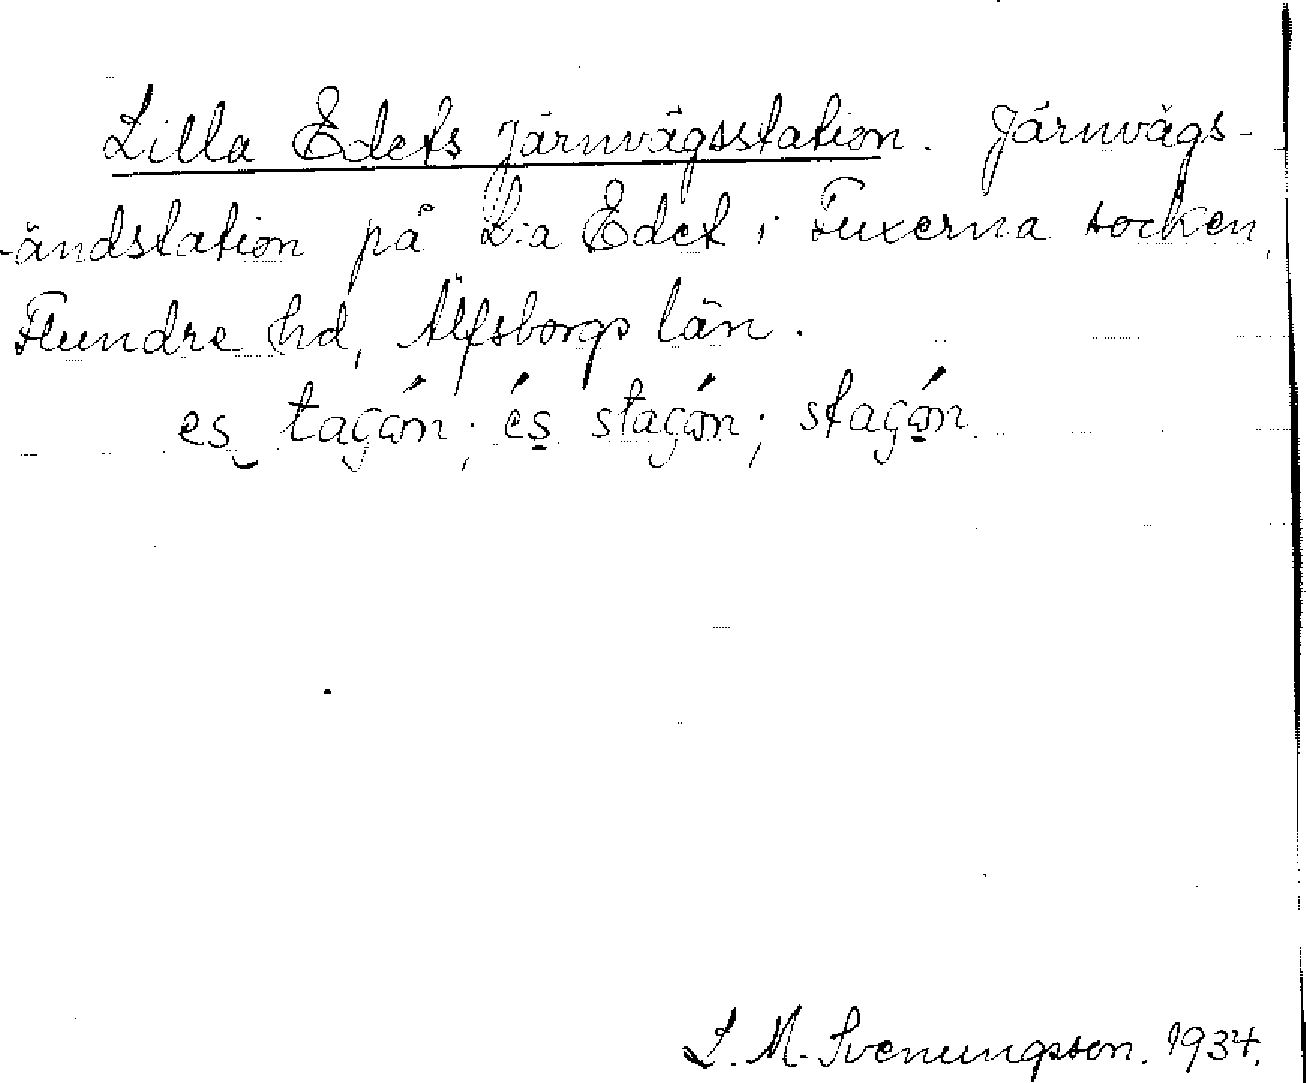 Lilla Edets Järnvägsstation. Järnvägs-
-ändstation på L:a Edet i Fuxerna socken,
Flundre hd, Älfsborgs län.
L. M. Svenungsson. 1934.